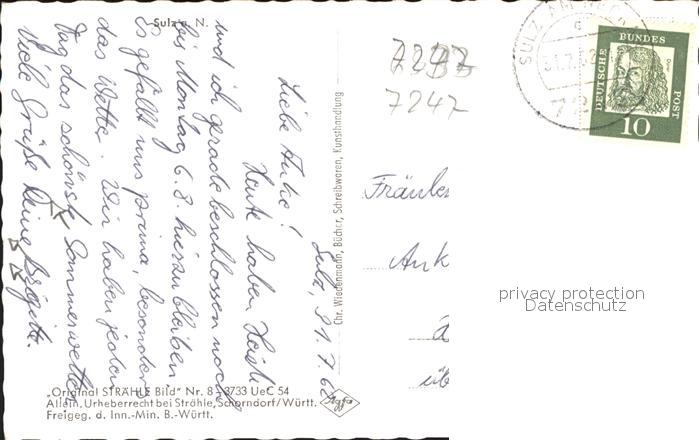 Sulz a. N.
Sulz, 31.7.62
Liebe Anke!
Heute haben Heidi
und ich gerade beschlossen noch
bis Montag 6.8. hierzubleiben
Es gefällt uns prima, besonders
das Wetter. Wir haben jeden
Tag das schönste Sommerwetter
Viele Grüße Deine Brigitte.
Chr. Wiedenmann, Bücher, Schreibwaren, Kunsthandlung
"Original STRÄHLE Bild" Nr. 8 - 3733 UeC 54
Allein. Urheberrecht bei Strähle, Schorndorf/Württ.
Freigeg. d. Inn.-Min. B.-Württ.
Agfa
7242
7242
SULZ AM
31.7.62
DEUTSCHE BUNDES POST
10
Fräulei
Ank
privacy protection
Datenschutz